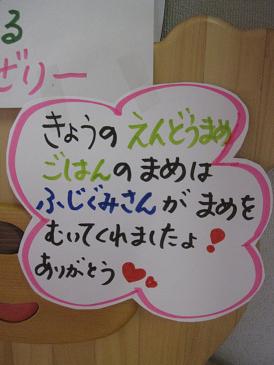 る
ぜりー
きょうの えんどうまめ
ごはんの まめは
ふじぐみさんが まめを
むいてくれましたよ!
ありがとう